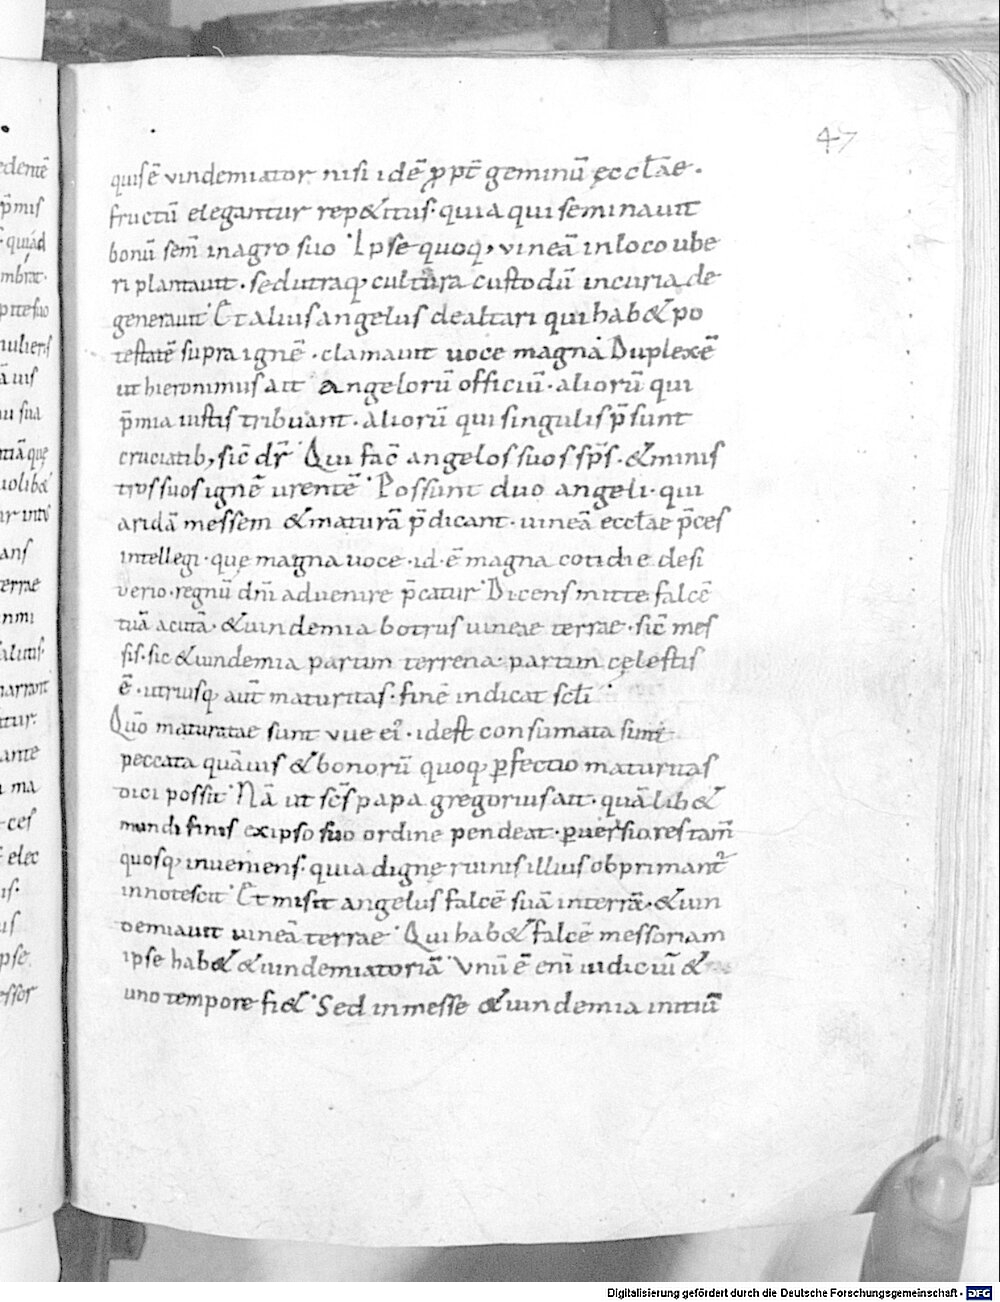 47
quis ē vindemiator nisi idē ꝓpt̄ geminū ecclae.
fructū elegantur rep&itus. quia qui seminauit
bonū sem̄ in agro suo. Ipse quoq; vineā in loco ube
ri plantauit. sed utraq; cultura custodū incuria de
generauit. Et alius angelus de altari qui hab& po
testatē supra ignē. clamauit uoce magna Duplexē
ut hieronimus ait angelorū officiū. aliorū qui
p̄mia iustis tribuant. aliorū qui singulis p̄sunt
cruciatib; sic̄ dr̄ Qui fac̄ angelos suos sp̄s. & minis
tros suos ignē urentē. Possunt duo angeli. qui
aridā messem & maturā p̄dicant. uineā ecclae p̄ces
intellegi. quę magna uoce. id. ē magna cotidie desi
verio. regnū dn̄i aduenire p̄catur Dicens mitte falcē
tuā acutā. & uindemia botrus uineae terrae. sic̄ mes
sis. sic & uindemia partim terrena. partim cęlestis
ē. utriusq; aut̄ maturitas. finē indicat scl̄i.
Qūo maturatae sunt vue ei᾽. idest consumata sunt
peccata quāuis & bonorū quoq; ꝑfectio maturitas
dici possit Nā ut sc̄s papa gregorius ait. quālib&
mundi finis ex ipso suo ordine pendeat. ꝑuersiores tam̄
quosq; inueniens. quia digne ruinis illius obprimant᾽
innotescit Et misit angelus falcē suā in terrā. & uin
demiauit uineā terrae Qui hab& falcē messoriam
ipse hab& & uindemiatoriā Vnū ē eni iudiciū &
uno tempore fi& Sed in messe & uindemia initiū
edentē
p̄mis
quiad
mbrat.
pite suo
mulieris
ā uis
su sua
tiā que
uolib&
ur intus
ans
terrae
nmi
salutis.
narrant
tur.
ante
ma
ces
elec
is.
us
pse
essor
Digitalisierung gefördert durch die Deutsche Forschungsgemeinschaft - DFG